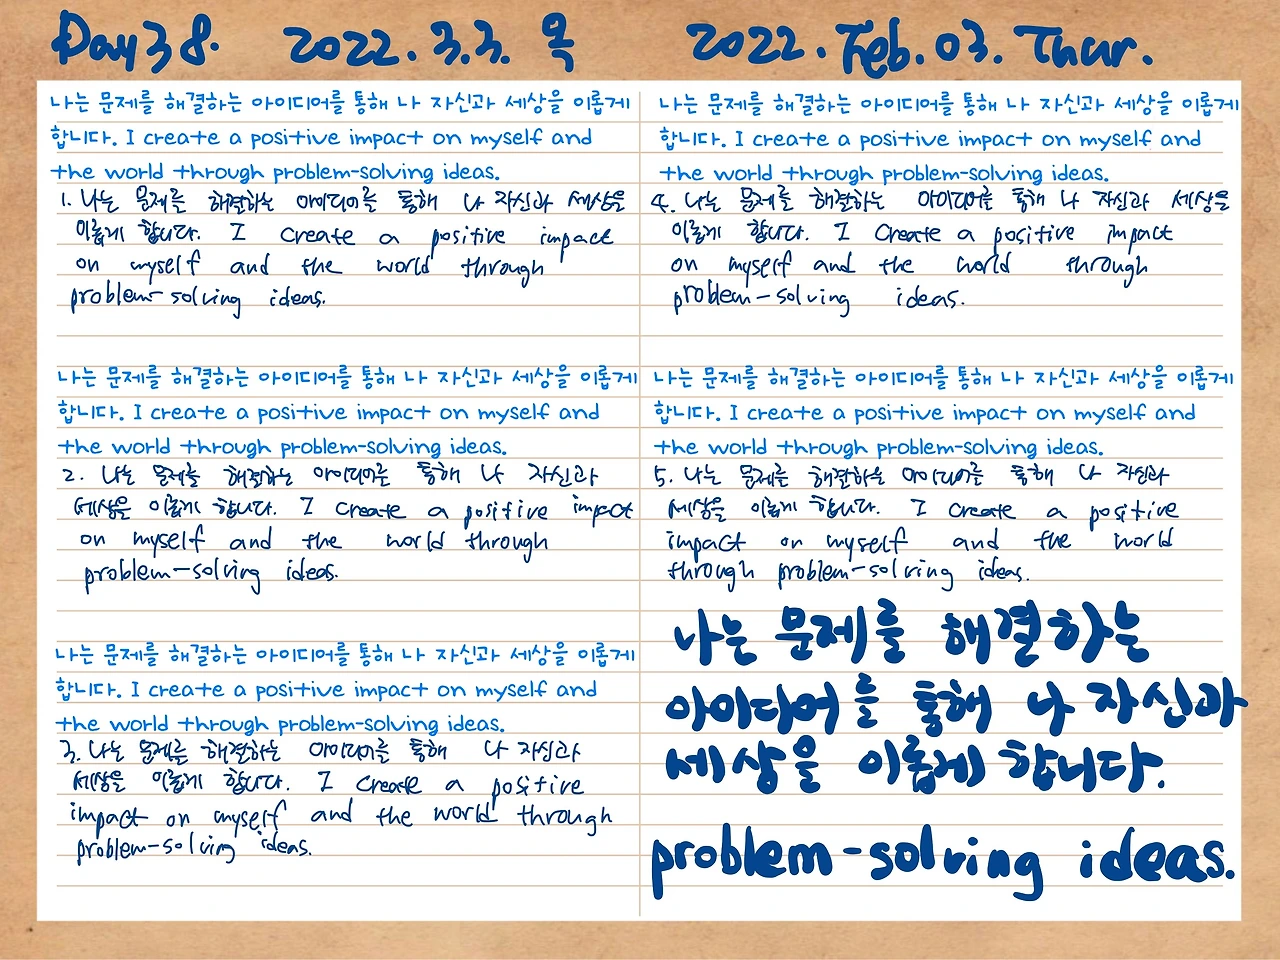 Day 38. 2022.3.3. 목 2022. Feb. 03. Thur.
나는 문제를 해결하는 아이디어를 통해 나 자신과 세상을 이롭게
합니다. I create a positive impact on myself and
the world through problem-solving ideas.
1. 나는 문제를 해결하는 아이디어를 통해 나 자신과 세상을
이롭게 합니다. I create a positive impact
on myself and the world through
problem-solving ideas.
나는 문제를 해결하는 아이디어를 통해 나 자신과 세상을 이롭게
합니다. I create a positive impact on myself and
the world through problem-solving ideas.
2. 나는 문제를 해결하는 아이디어를 통해 나 자신과
세상을 이롭게 합니다. I create a positive impact
on myself and the world through
problem-solving ideas.
나는 문제를 해결하는 아이디어를 통해 나 자신과 세상을 이롭게
합니다. I create a positive impact on myself and
the world through problem-solving ideas.
3. 나는 문제를 해결하는 아이디어를 통해 나 자신과
세상을 이롭게 합니다. I create a positive
impact on myself and the world through
problem-solving ideas.
나는 문제를 해결하는 아이디어를 통해 나 자신과 세상을 이롭게
합니다. I create a positive impact on myself and
the world through problem-solving ideas.
4. 나는 문제를 해결하는 아이디어를 통해 나 자신과 세상을
이롭게 합니다. I create a positive impact
on myself and the world through
problem-solving ideas.
나는 문제를 해결하는 아이디어를 통해 나 자신과 세상을 이롭게
합니다. I create a positive impact on myself and
the world through problem-solving ideas.
5. 나는 문제를 해결하는 아이디어를 통해 나 자신과
세상을 이롭게 합니다. I create a positive
impact on myself and the world
through problem-solving ideas.
나는 문제를 해결하는
아이디어를 통해 나 자신과
세상을 이롭게 합니다.
problem-solving ideas.